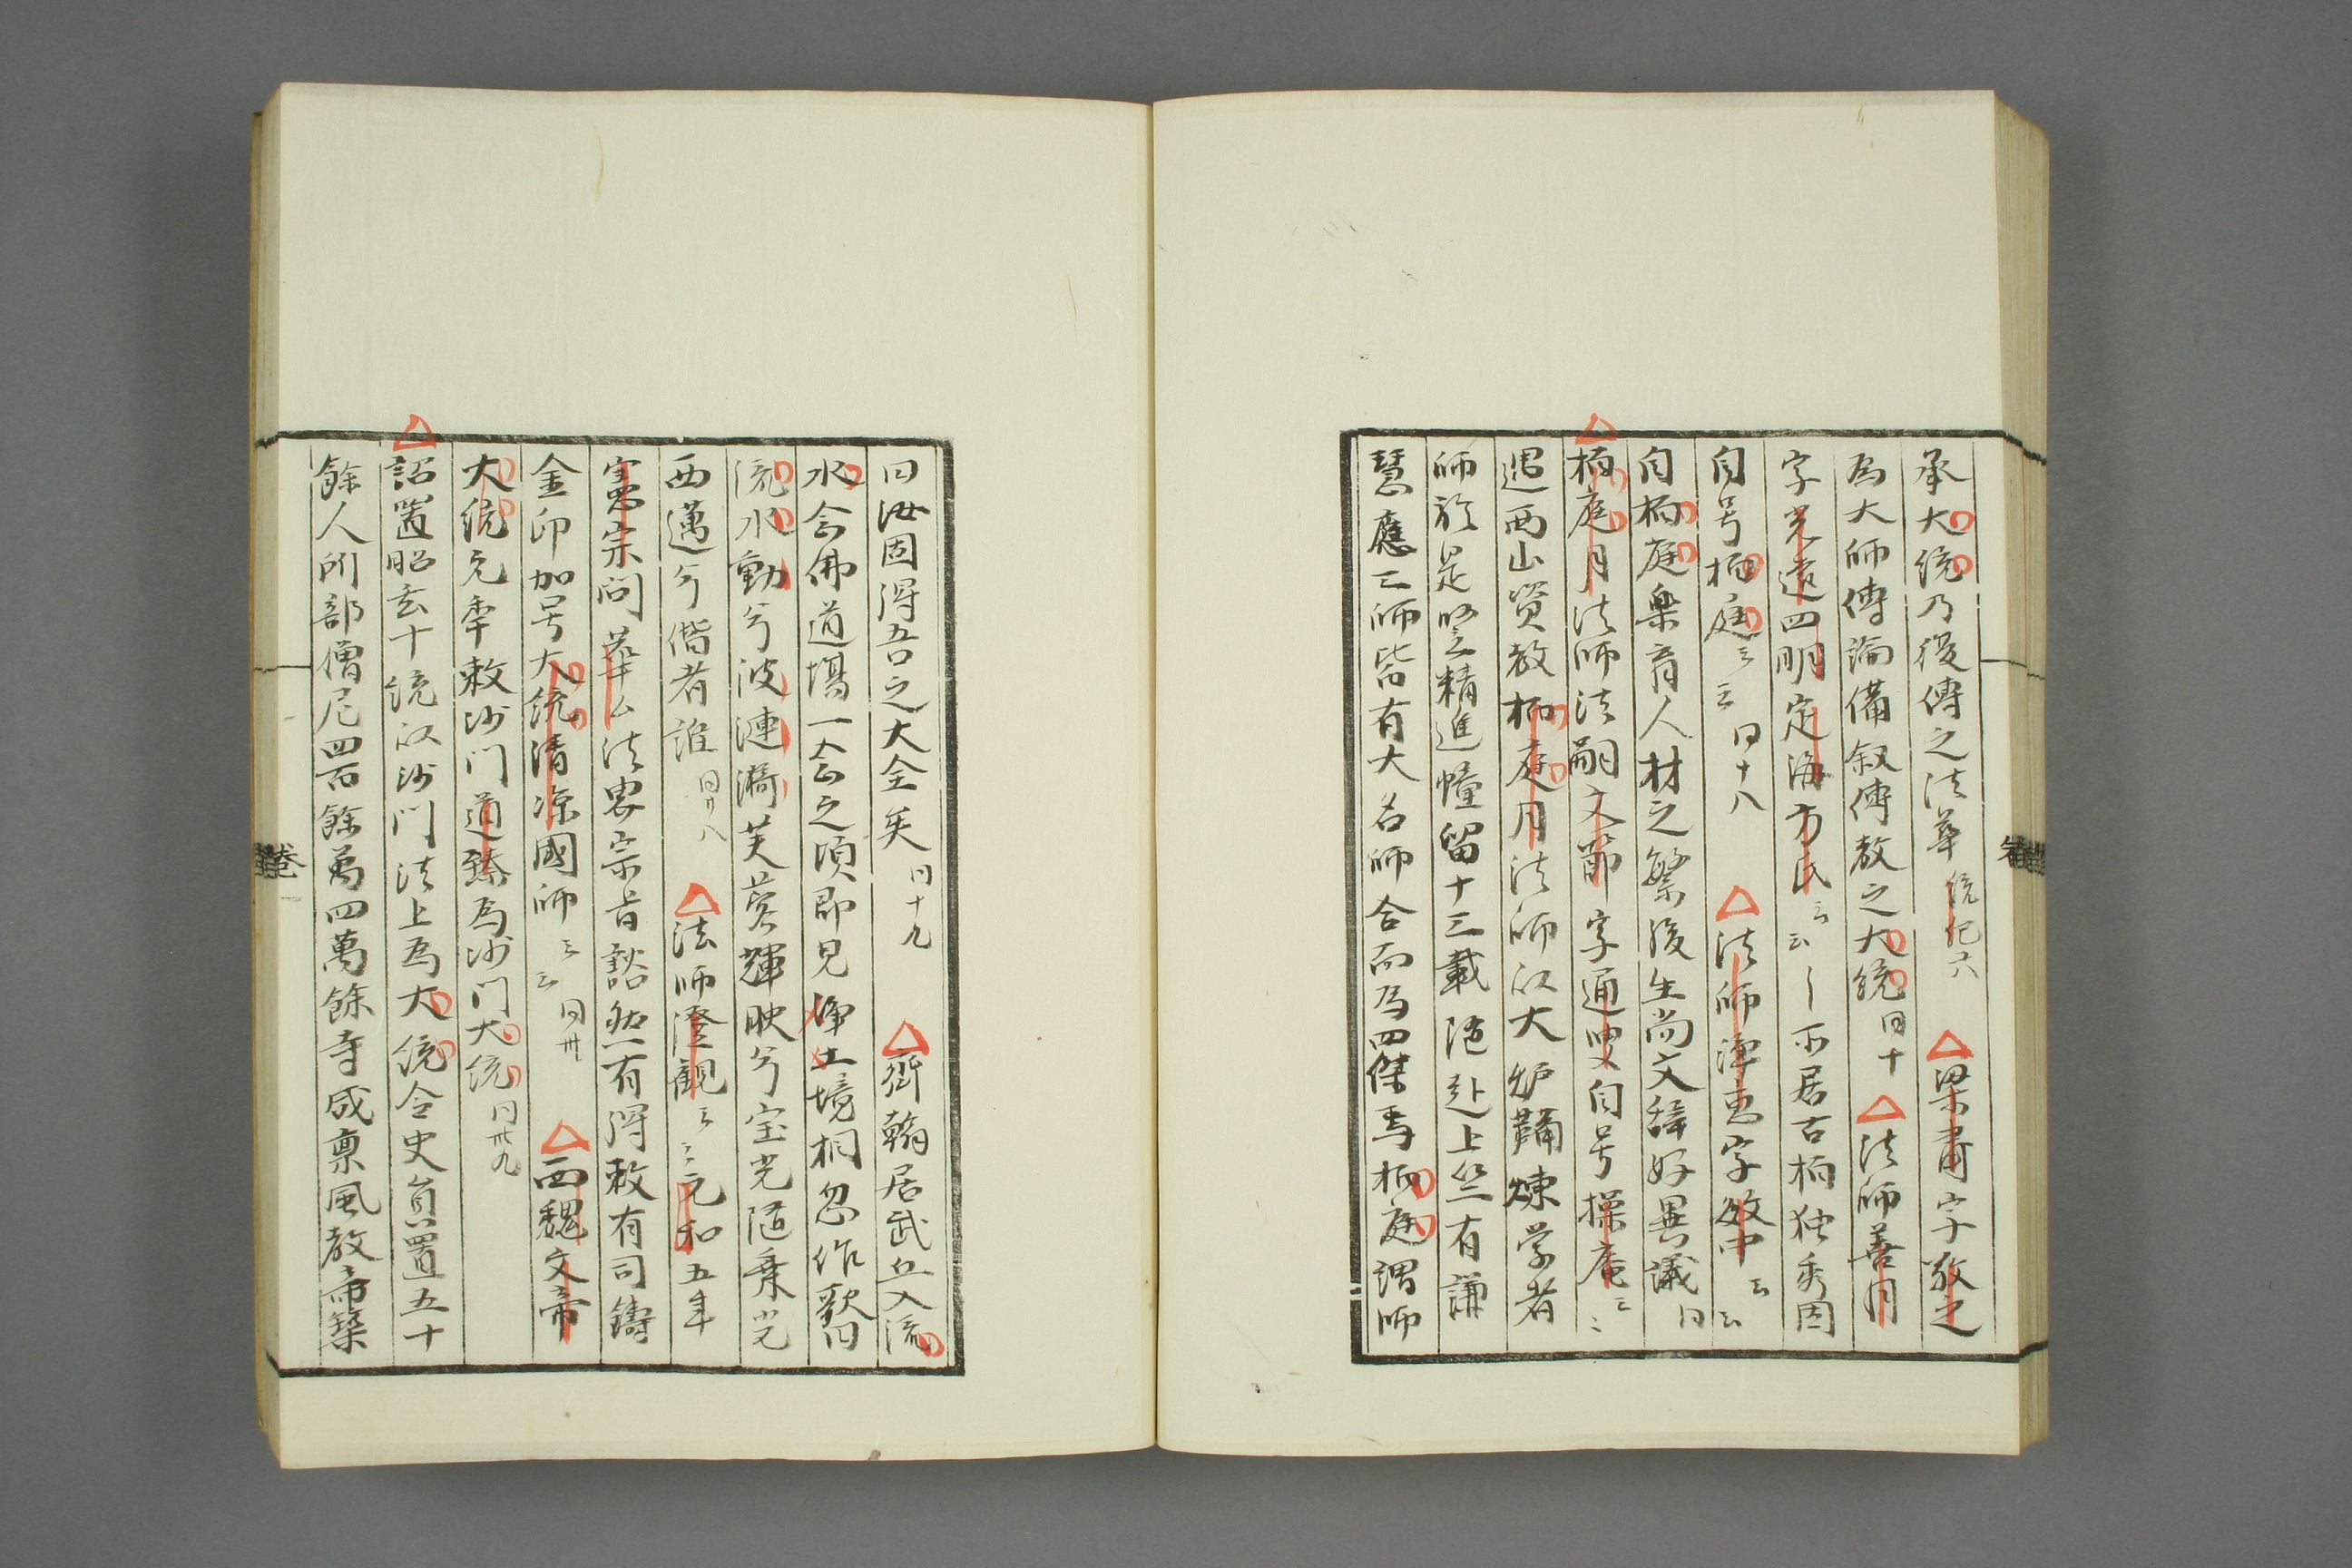 承大統乃後傳之法華 統紀六 △梁肅字敬之
為大師傳論備叙傳教之大統 同十 △法師善月
字光遠四明定海方氏云云丨所居古柏独秀因
自号柏庭云云 同十八 △法師淨惠字敏中云云
自柏庭樂育人材之繁後生尚文辞好異議 同
△柏庭月法師法嗣文節字通叟自号操庵云云
迢西山賢教柏庭月法師以大炉鞴煉学者
師於是堅精進幢留十三載随赴上竺有謙
慧應三師皆有大名師合而為四傑焉柏庭謂師
曰汝固得吾之大全矣 同十九 △齊翰居武丘入流
水念佛道場一念之頃即見淨土境相忽作歌曰
流水動兮波漣漪芙蓉輝映兮宝光随乗光
西邁兮偕者誰 同廿八 △法師澄観云云元和五年
憲宗問華ム法界宗旨豁然有得敕有司鑄
金印加号大統清凉國師云云 同卅 △西魏文帝
大統元年敕沙门道臻為沙门大統 同卅九
△詔置昭玄十統以沙门法上為大統令史員置五十
餘人所部僧尼四百餘萬四萬餘寺咸稟風教帝築
卷